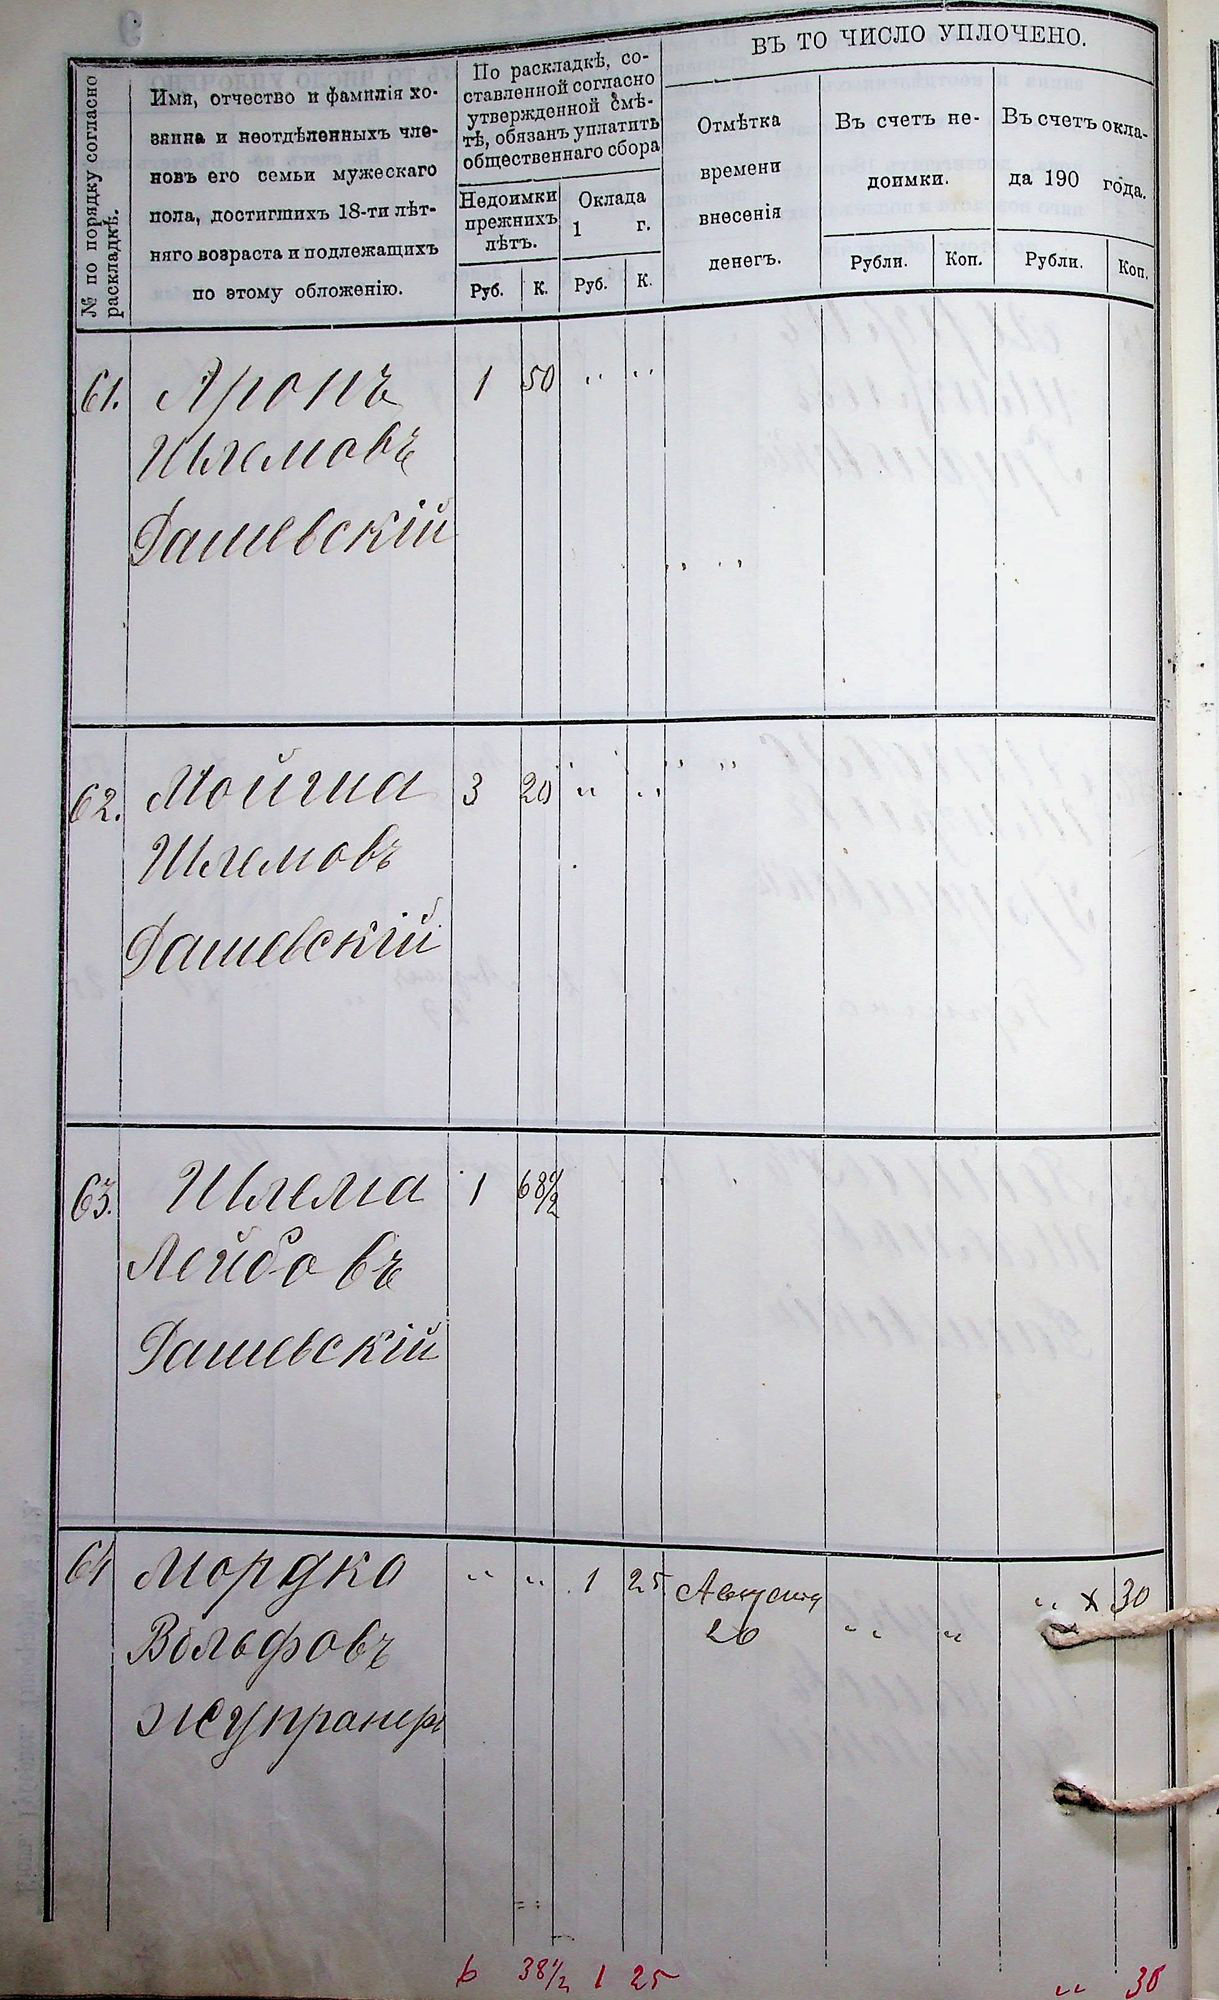 № по порядку согласно раскладкѣ.
Имя, отчество и фамилія хо-
зяина и неотдѣленныхъ чле-
новъ его семьи мужескаго
пола, достигшихъ 18-ти лѣт-
няго возраста и подлежащихъ
по этому обложенію.
По раскладкѣ, со-
ставленной согласно
утвержденной смѣ-
тѣ, обязанъ уплатить
общественнаго сбора
Недоимки
прежнихъ
лѣтъ.
Оклада
1 г.
Руб. К. Руб. К.
ВЪ ТО ЧИСЛО УПЛОЧЕНО.
Отмѣтка
времени
внесенія
денегъ.
Въ счетъ не-
доимки.
Въ счетъ окла-
да 190 года.
Рубли. Коп. Рубли. Коп.
61. Аронъ 1 50 " "
Шлемовъ
Дашевскій
" "
62. Мойша 3 20 " " " "
Шлемовъ
Дашевскій
63. Шлема 1 68 1/2
Лейбовъ
Дашевскій
64 Мордко " " 1 25 Августа " х 30
Вольфовъ 26 " "
6 38 1/2 1 25 " 30